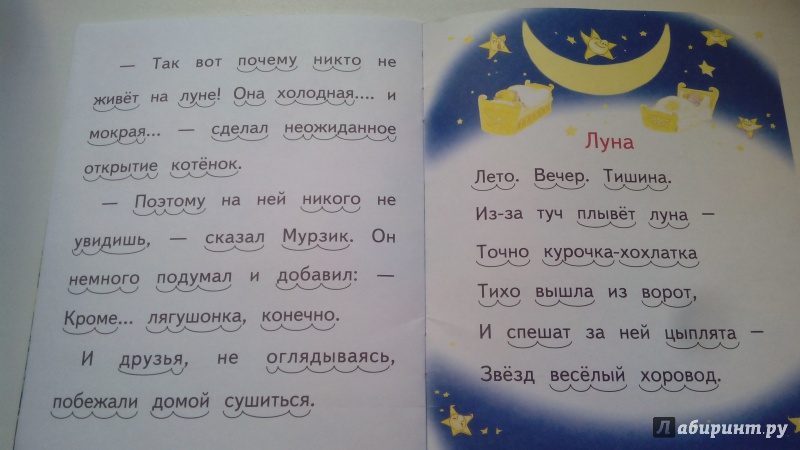 — Так вот почему никто не
живёт на луне! Она холодная.... и
мокрая... — сделал неожиданное
открытие котёнок.
— Поэтому на ней никого не
увидишь, — сказал Мурзик. Он
немного подумал и добавил: —
Кроме... лягушонка, конечно.
И друзья, не оглядываясь,
побежали домой сушиться.
Луна
Лето. Вечер. Тишина.
Из-за туч плывёт луна –
Точно курочка-хохлатка
Тихо вышла из ворот,
И спешат за ней цыплята –
Звёзд весёлый хоровод.
Лабиринт.ру